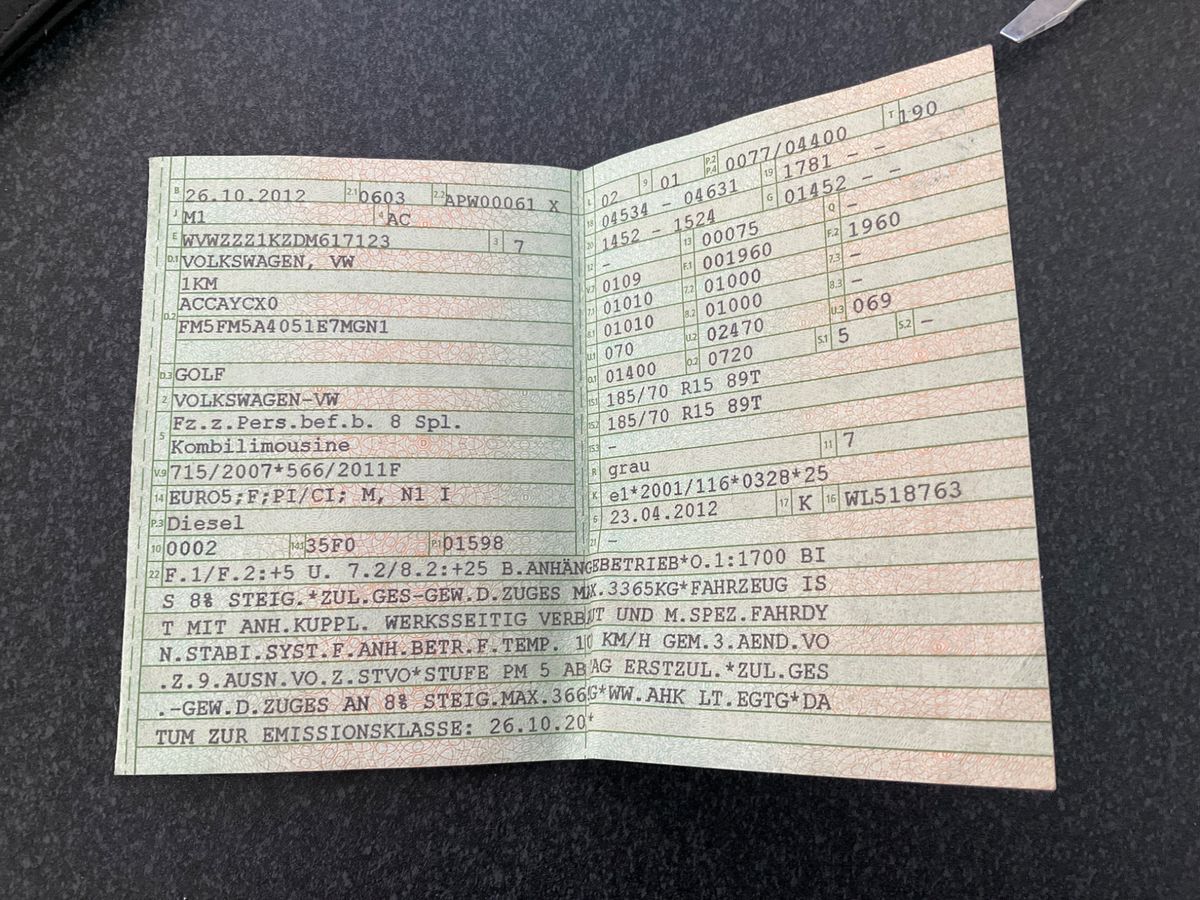 B 26.10.2012 2.1 0603 2.2 APW00061 X
J M1 4 AC
E WVWZZZ1KZDM617123 3 7
D.1 VOLKSWAGEN, VW
1KM
D.2 ACCAYCX0
FM5FM5A4051E7MGN1
D.3 GOLF
2 VOLKSWAGEN-VW
5 Fz.z.Pers.bef.b. 8 Spl.
Kombilimousine
V.9 715/2007*566/2011F
14 EURO5;F;PI/CI; M, N1 I
P.3 Diesel
10 0002 14.1 35F0 P.1 01598
L 02 9 01 P.2 P.4 0077/04400 T 190
18 04534 - 04631 19 1781 - -
20 1452 - 1524 G 01452 - -
12 - 13 00075 Q -
V.7 0109 F.1 001960 F.2 1960
7.1 01010 7.2 01000 7.3 -
8.1 01010 8.2 01000 8.3 -
U.1 070 U.2 02470 U.3 069
O.1 01400 O.2 0720 S.1 5 S.2 -
15.1 185/70 R15 89T
15.2 185/70 R15 89T
15.3 -
R grau 11 7
K e1*2001/116*0328*25
6 23.04.2012 17 K 16 WL518763
21 -
22 F.1/F.2:+5 U. 7.2/8.2:+25 B.ANHÄNGEBETRIEB*O.1:1700 BI
S 8% STEIG.*ZUL.GES-GEW.D.ZUGES MAX.3365KG*FAHRZEUG IS
T MIT ANH.KUPPL. WERKSSEITIG VERBAUT UND M.SPEZ.FAHRDY
N.STABI.SYST.F.ANH.BETR.F.TEMP. KM/H GEM.3.AEND.VO
.Z.9.AUSN.VO.Z.STVO*STUFE PM 5 AB TAG ERSTZUL.*ZUL.GES
.-GEW.D.ZUGES AN 8% STEIG.MAX. *WW.AHK LT.EGTG*DA
TUM ZUR EMISSIONSKLASSE: